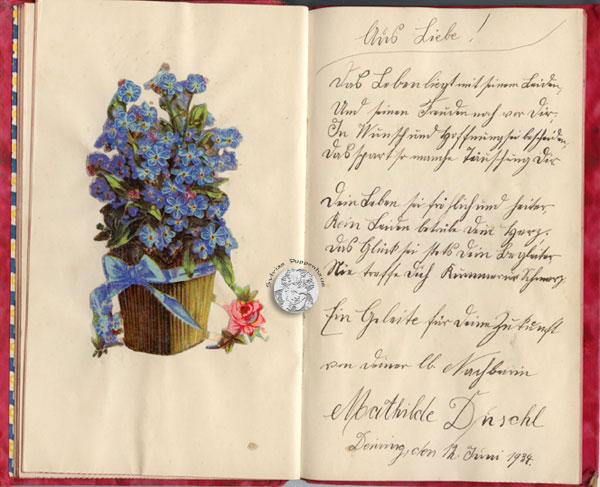 Aus Liebe!
Das Leben liegt mit seinem Leiden,
Und seinen Freuden noch vor Dir,
In Wunsch und Hoffnung sei bescheiden,
Das spart so manche Täuschung Dir
Dein Leben sei fröhlich und heiter
Kein Leiden betrübe dein Herz.
Das Glück sei stets dein Begleiter
Nie treffe Dich Kummer und Schmerz.
Ein Geleite für Deine Zukunft
von deiner lb. Nachbarin
Mathilde Duschl
den 12. Juni 1934.
Sylvias Puppenheim